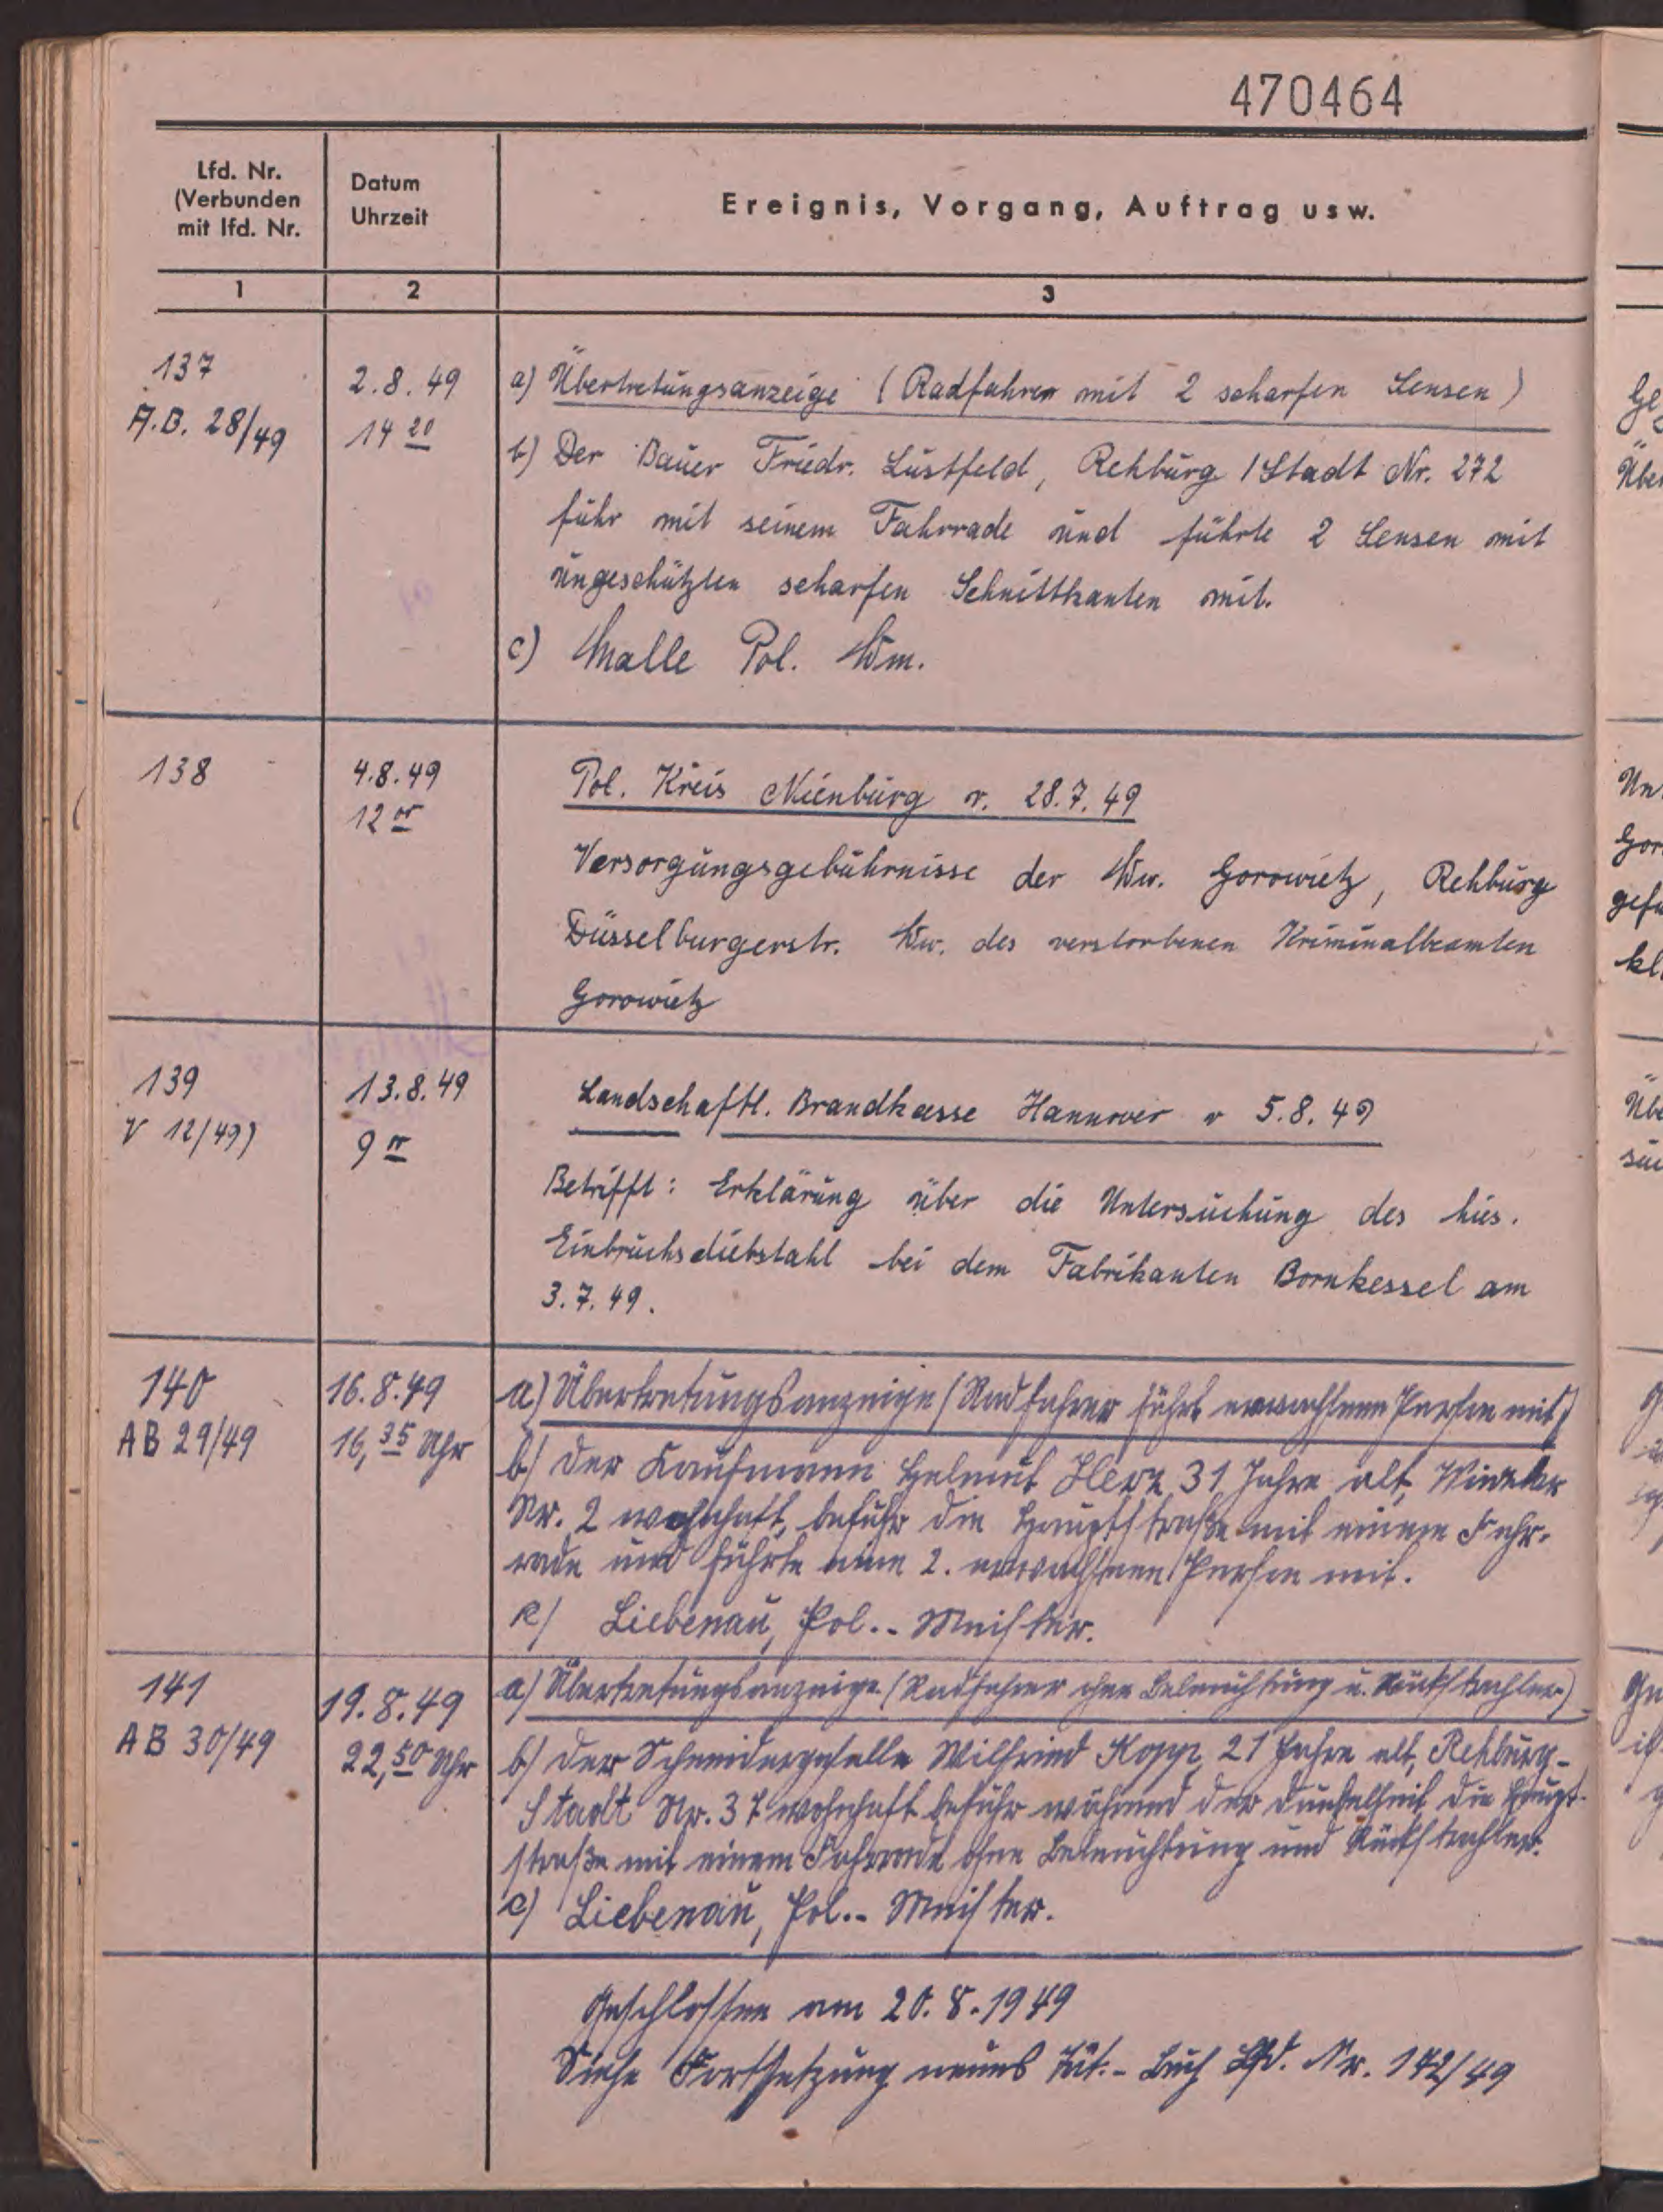 470464
Lfd. Nr.
(Verbunden
mit lfd. Nr.
Datum
Uhrzeit
Ereignis, Vorgang, Auftrag usw.
1
2
3
137
A.B. 28/49
2.8.49
14 20
a) Übertretungsanzeige (Radfahren mit 2 scharfen Sensen)
b) Der Bauer Friedr. Lustfeld, Rehburg/Stadt Nr. 272
fuhr mit seinem Fahrrade und führte 2 Sensen mit
ungeschützten scharfen Schnittkanten mit.
c) Malle Pol. Wm.
138
4.8.49
12 00
Pol. Kreis Nienburg v. 28.7.49
Versorgungsgebührnisse der Ww. Gorowietz, Rehburg
Düsselburgerstr. Ww. des verstorbenen Kriminalbeamten
Gorowietz
139
V 12/49)
13.8.49
9 00
Landschaftl. Brandkasse Hannover v 5.8.49
Betrifft: Erklärung über die Untersuchung des hies.
Einbruchsdiebstahl bei dem Fabrikanten Bornkessel am
3.7.49.
140
AB 29/49
16.8.49
16,35 Uhr
a) Übertretungsanzeige (Radfahrer führt erwachsene Person mit)
b) Der Kaufmann Helmut 31 Jahre alt,
Nr. 2 wohnhaft, befuhr die Hauptstraße mit einem Fahr-
rade und führte eine 2. erwachsene Person mit.
c) Liebenau, Pol.-Meister.
141
AB 30/49
19.8.49
22,50 Uhr
a) Übertretungsanzeige (Radfahrer ohne Beleuchtung u. Rückstrahler)
b) Der Schneidergeselle Wilfried Kopp, 21 Jahre alt, Rehburg-
Stadt Nr. 37 wohnhaft befuhr während der Dunkelheit die Haupt-
straße mit einem Fahrrade ohne Beleuchtung und Rückstrahler.
c) Liebenau, Pol.-Meister.
Geschlossen am 20.8.1949
Siehe Fortsetzung neues Tät.-Buch Lfd. Nr. 142/49